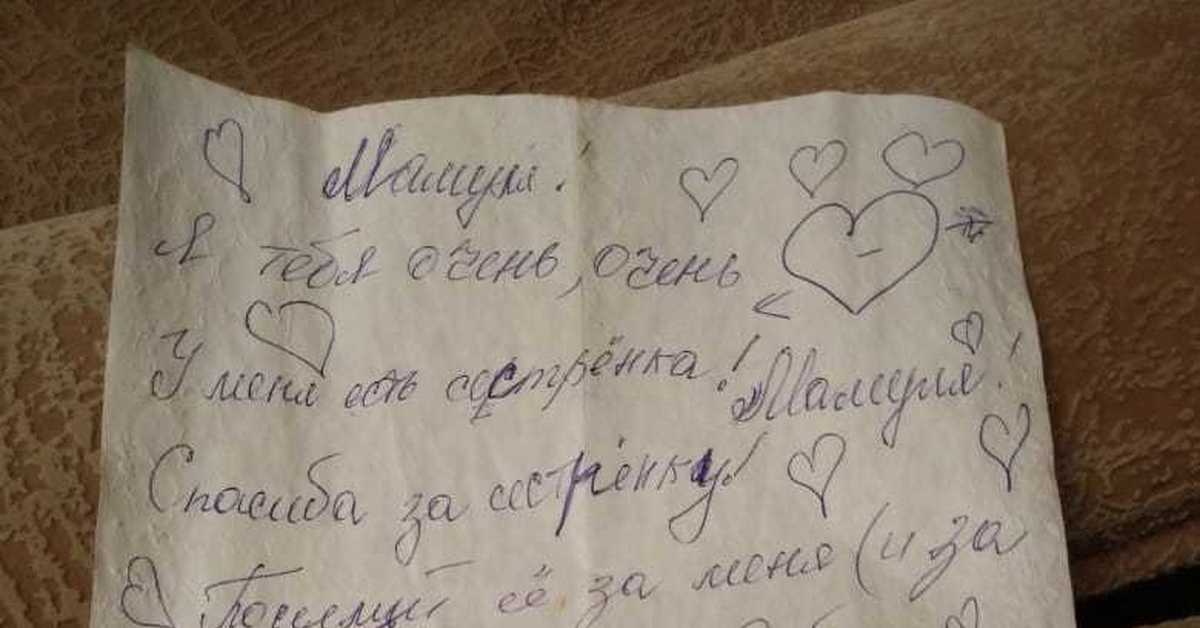 Мамуля.
Я тебя очень, очень
У меня есть сестрёнка!
Мамуля!
Спасиба за сестрёнку!
Поцелуй её за меня (и за